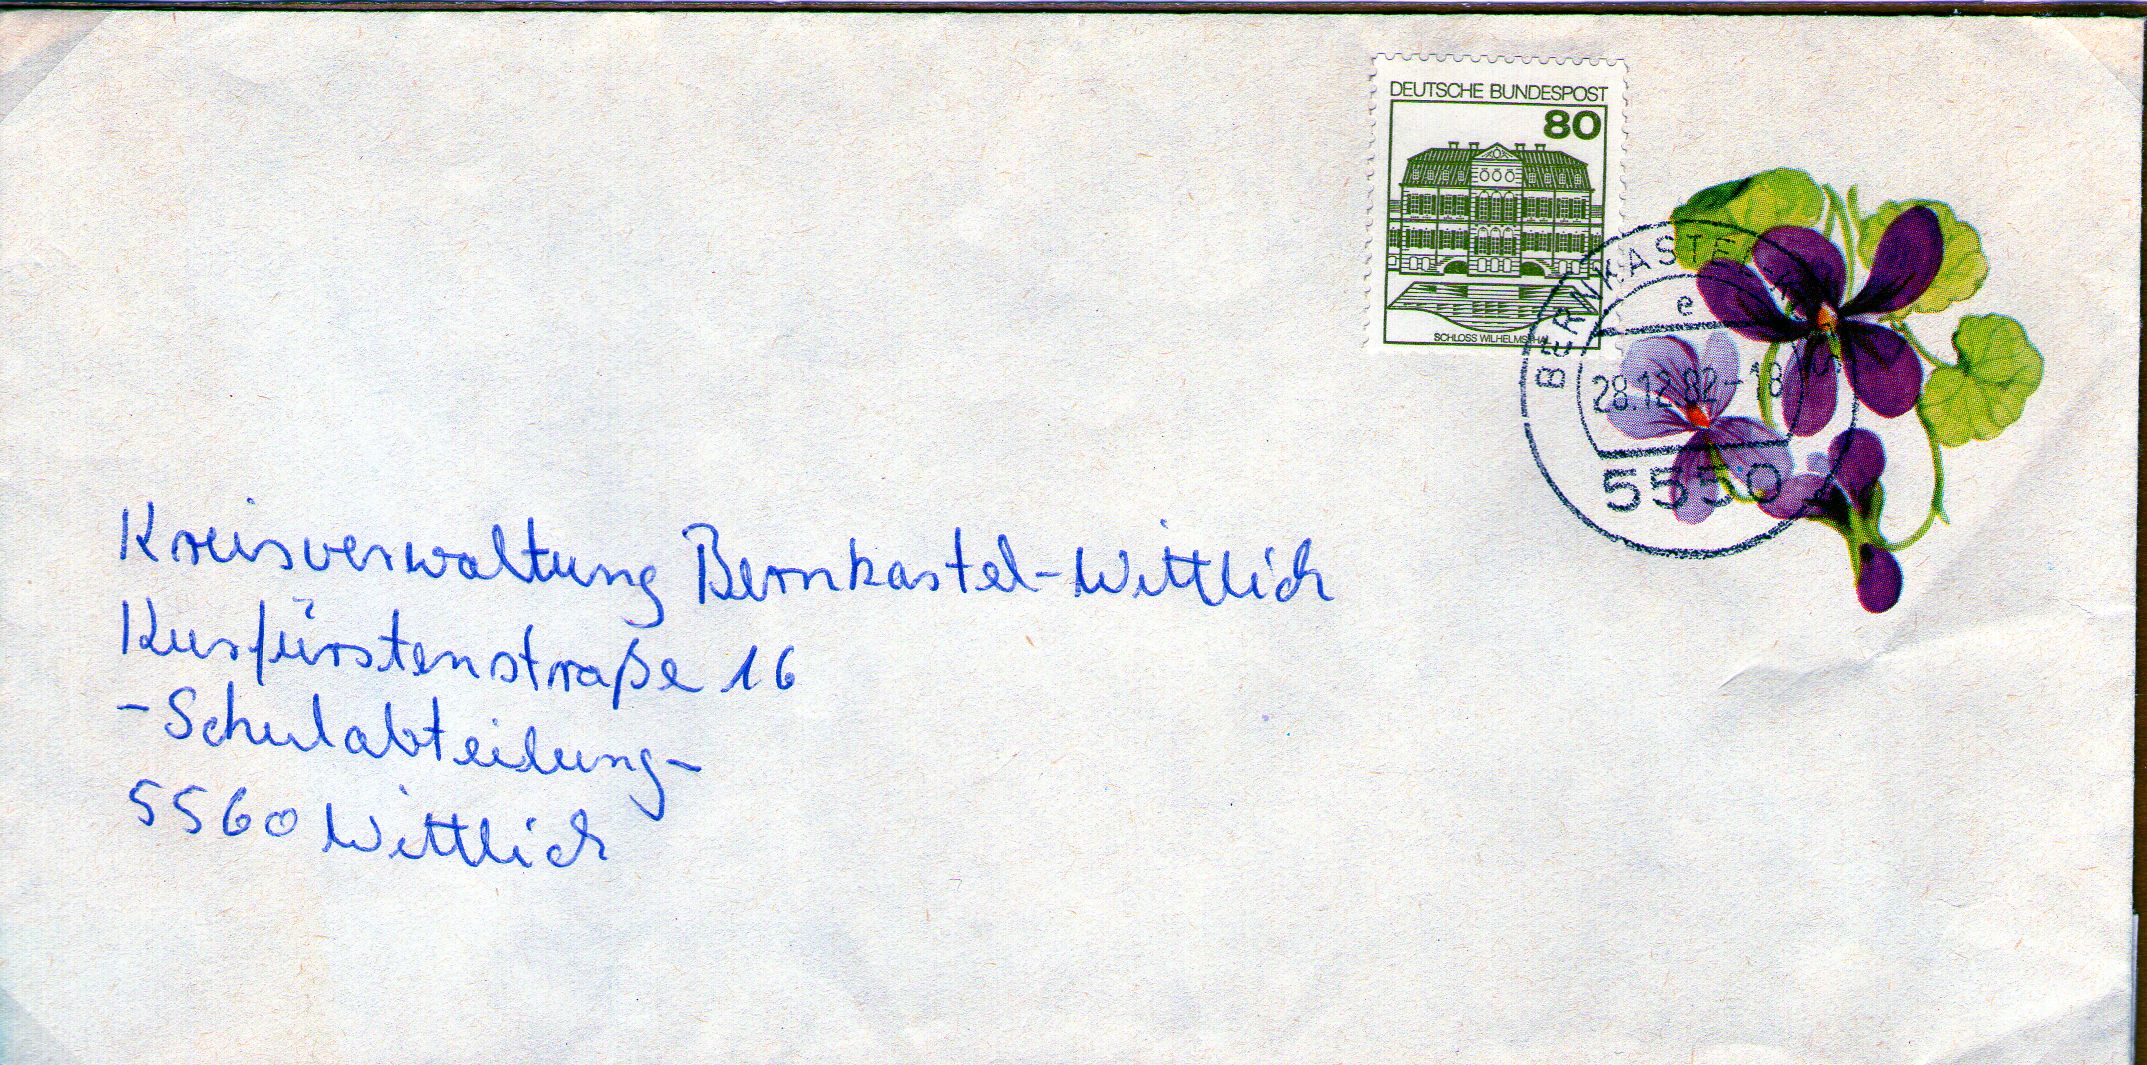 DEUTSCHE BUNDESPOST
80
SCHLOSS WILHELMSTHAL
BERNKASTEL-KUES
e
28.12.82-18
5550
Kreisverwaltung Bernkastel-Wittlich
Kurfürstenstraße 16
-Schulabteilung-
5560 Wittlich